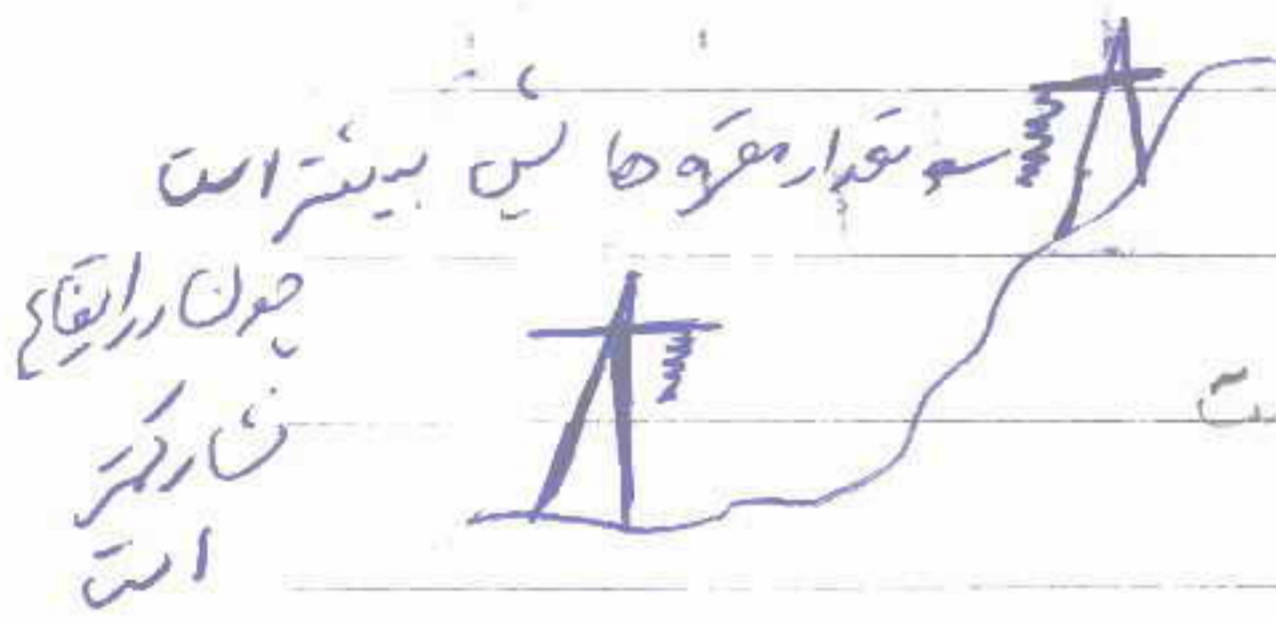 تعداد مقره هایش بیشتر است
چون در ارتفاع
فشار کمتر
است